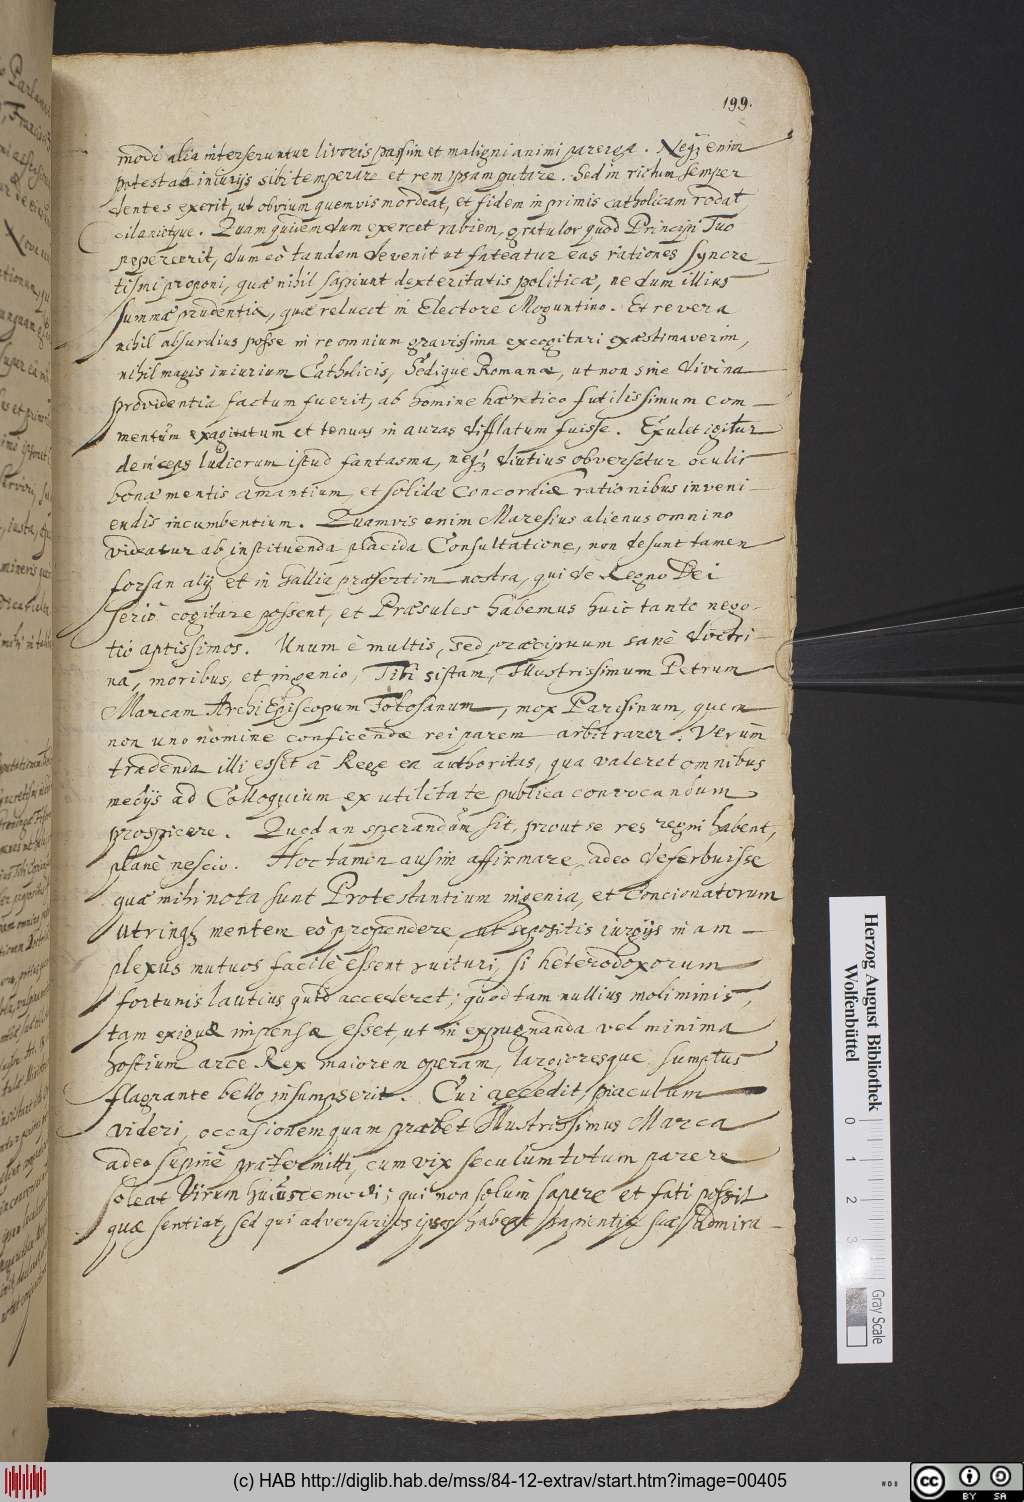 199.
modi alia interseruntur livoris passim et maligni animi parerga. Neq; enim
potest ab iniurijs sibi temperare et rem ipsam putare. Sed in rictum semper
dentes exerit, ut obvium quemvis mordeat, et fidem in primis Catholicam rodat,
Quam quidem dum exercet rabiem, gratulor quod Principi Tuo
pepercerit, dum eò tandem devenit ut fateatur eas rationes Syncre-
tismi proponi, quæ nihil sapiunt dexteritatis politicæ, nedum illius
summæ prudentiæ, quæ relucet in Electore Moguntino. Et revera
nihil absurdius posse in re omnium gravissima excogitari exæstimaverim,
nihil magis iniurium Catholicis, Sedique Romanæ, ut non sine divina
providentia factum fuerit, ab homine hæretico futilissimum com-
mentum exagitatum et tenuas in auras difflatum fuisse. Exulet igitur
deinceps ludicrum istud fantasma, neq; diutius obversetur oculis
bonæ mentis amantium, et solidæ Concordiæ rationibus inveni-
endis incumbentium. Quamvis enim Maresius alienus omnino
videatur ab instituenda placida Consultatione, non desunt tamen
forsan alij et in Gallia præsertim nostra, qui de Regno Dei
seriò cogitare possent, et Præsules habemus huic tanto nego-
tio aptissimos. Unum è multis, sed præcipuum sanè doctri-
na, moribus, et ingenio, Tibi sistam, Illustrissimum Petrum
Marcam ArchiEpiscopum Tolosanum, mox Parisinum, quem
non uno nomine conficiendæ rei parem arbitrarer. Verùm
tradenda illi esset à Rege ea authoritas, qua valeret omnibus
medijs ad Colloquium ex utilitate publica convocandum
prospicere. Quod an sperandum sit, prout se res regni habent,
planè nescio. Hoc tamen ausim affirmare, adeo deferbuisse
quæ mihi nota sunt Protestantium ingenia, et Concionatorum
utrinq; mentem eò propendere, ut sepositis iurgijs in am-
plexus mutuos facilè essent ruituri, si heterodoxorum
fortunis lautius quid accederet; quod tam nullius moliminis,
tam exiguæ impensæ esset, ut in expugnanda vel minima
hostium arce Rex maiorem operam, largioresque sumptus
flagrante bello insumpserit. Cui accedit, piaculum
videri, occasionem quam præbet Illustrissimus Marca
adeo supinè prætermitti, cum vix seculum totum parere
soleat Virum huiuscemodi; qui non solùm sapere et fari possit
quæ sentiat, sed qui adversarios ipsos habeat sapientiæ suæ admira-
Herzog August Bibliothek
Wolfenbüttel
0 1 2 3
Gray Scale
(c) HAB http://diglib.hab.de/mss/84-12-extrav/start.htm?image=00405
CC BY SA